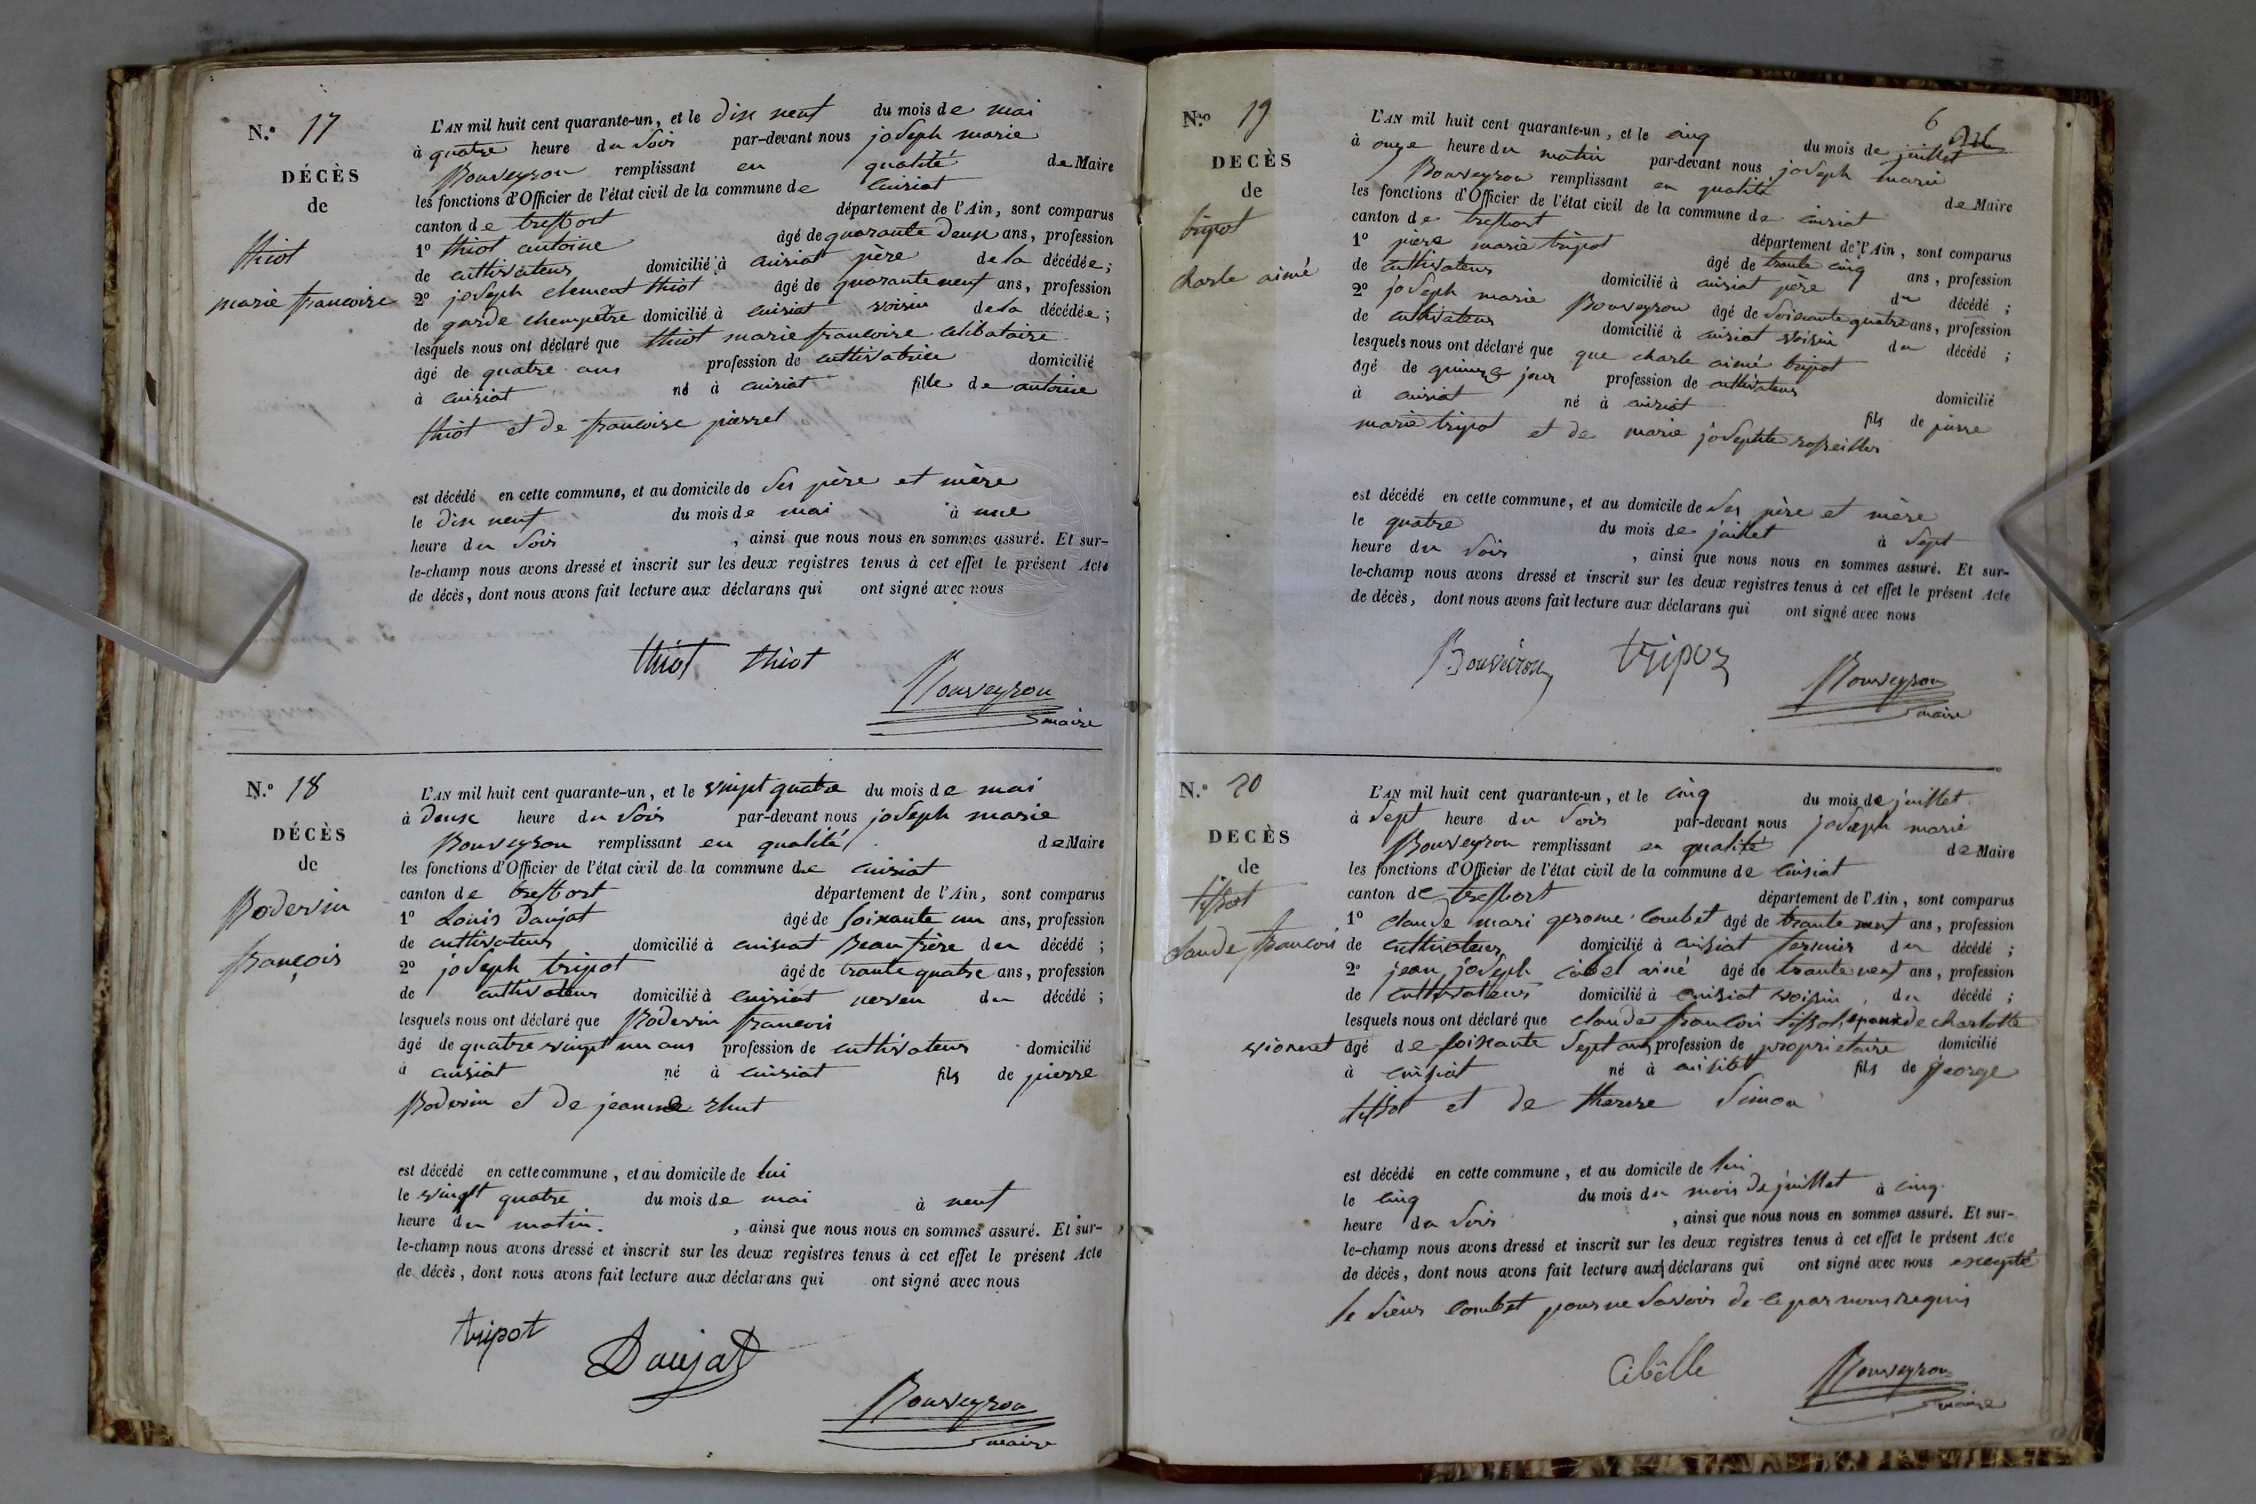 N.° 17
DÉCÈS
de
thiot
marie francoise
L'AN mil huit cent quarante-un, et le dix neuf du mois de mai
à quatre heure du soir par-devant nous joseph marie
Bouveyron remplissant en qualité de Maire
les fonctions d'Officier de l'état civil de la commune de cuisiat
canton de treffort département de l'Ain, sont comparus
1° thiot antoine âgé de quarante deux ans, profession
de cultivateur domicilié à cuisiat père de la décédée;
2° joseph clement thiot âgé de quarante neuf ans, profession
de garde champetre domicilié à cuisiat voisin de la décédée;
lesquels nous ont déclaré que thiot marie francoise celibataire
âgé de quatre ans profession de cultivatrice domicilié
à cuisiat né à cuisiat fille de antoine
thiot et de francoise pierret
est décédé en cette commune, et au domicile de ses père et mère
le dix neuf du mois de mai à une
heure du soir , ainsi que nous nous en sommes assuré. Et sur-
le-champ nous avons dressé et inscrit sur les deux registres tenus à cet effet le présent Acte
de décès, dont nous avons fait lecture aux déclarans qui ont signé avec nous
thiot thiot
Bouveyron
maire
N.° 18
DÉCÈS
de
Boderin
françois
L'AN mil huit cent quarante-un, et le vingt quatre du mois de mai
à deux heure du soir par-devant nous joseph marie
Bouveyron remplissant en qualité de Maire
les fonctions d'Officier de l'état civil de la commune de cuisiat
canton de treffort département de l'Ain, sont comparus
1° Louis Daujat âgé de soixante un ans, profession
de cultivateur domicilié à cuisiat Beau frère du décédé ;
2° joseph tripot âgé de trante quatre ans, profession
de cultivateur domicilié à cuisiat neveu du décédé ;
lesquels nous ont déclaré que Boderin francois
âgé de quatre vingt un ans profession de cultivateur domicilié
à cuisiat né à cuisiat fils de pierre
Boderin et de jeanne
est décédé en cette commune, et au domicile de lui
le vingt quatre du mois de mai à neuf
heure du matin. , ainsi que nous nous en sommes assuré. Et sur-
le-champ nous avons dressé et inscrit sur les deux registres tenus à cet effet le présent Acte
de décès, dont nous avons fait lecture aux déclarans qui ont signé avec nous
tripot
Daujat
Bouveyron
maire
6
N.° 19
DECÈS
de
tripot
charle aimé
L'AN mil huit cent quarante-un, et le cinq du mois de juillet
à onze heure du matin par-devant nous joseph marie
Bouveyron remplissant en qualité de Maire
les fonctions d'Officier de l'état civil de la commune de cuisiat
canton de treffort département de l'Ain, sont comparus
1° piere marie tripot âgé de trante cinq ans, profession
de cultivateur domicilié à cuisiat père du décédé ;
2° joseph marie Bouveyron âgé de soixante quatre ans, profession
de cultivateur domicilié à cuisiat voisin du décédé ;
lesquels nous ont déclaré que que charle aimé tripot
âgé de quinze jour profession de cultivateur domicilié
à cuisiat né à cuisiat fils de pierre
marie tripot et de marie josephte
est décédé en cette commune, et au domicile de ses père et mère
le quatre du mois de juillet à sept
heure du soir , ainsi que nous nous en sommes assuré. Et sur-
le-champ nous avons dressé et inscrit sur les deux registres tenus à cet effet le présent Acte
de décès, dont nous avons fait lecture aux déclarans qui ont signé avec nous
Bouveiron tripoz
Bouveyron
maire
N.° 20
DECÈS
de
tissot
claude francois
L'AN mil huit cent quarante-un, et le cinq du mois de juillet
à sept heure du soir par-devant nous joseph marie
Bouveyron remplissant en qualité de Maire
les fonctions d'Officier de l'état civil de la commune de cuisiat
canton de treffort département de l'Ain, sont comparus
1° claude mari gerome combet âgé de trante neuf ans, profession
de cultivateur domicilié à cuisiat fermier du décédé ;
2° jean joseph cibel ainé âgé de trante neuf ans, profession
de cultivateur domicilié à cuisiat voisin du décédé ;
lesquels nous ont déclaré que claude francois tissot, epoux de charlotte
vionnet âgé de soixante sept ans profession de proprietaire domicilié
à cuisiat né à cuisiat fils de george
tissot et de therese simon
est décédé en cette commune, et au domicile de lui
le cinq du mois du mois de juillet à cinq
heure du soir , ainsi que nous nous en sommes assuré. Et sur-
le-champ nous avons dressé et inscrit sur les deux registres tenus à cet effet le présent Acte
de décès, dont nous avons fait lecture aux déclarans qui ont signé avec nous excepté
le sieur combet pour ne savoir de ce par nous requis
Cibèlle
Bouveyron
maire